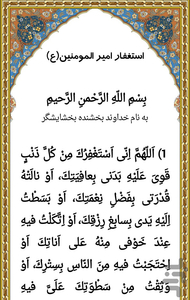 استغفار امیر المومنین(ع)
بِسْمِ اللَّهِ الرَّحْمنِ الرَّحيمِ
به نام خداوند بخشنده بخشایشگر
1) اَللَّهُمَّ اِنّى اَسْتَغْفِرُكَ مِنْ كُلِّ ذَنْبٍ
قَوِىَ عَلَيْهِ بَدَنى بِعافِيَتِكَ، اَوْ نالَتْهُ
قُدْرَتى بِفَضْلِ نِعْمَتِكَ، اَوْ بَسَطْتُ
اِلَيْهِ يَدى بِسابِغِ رِزْقِكَ، اَوِ اتَّكَلْتُ فيهِ
عِنْدَ خَوْفى مِنْهُ عَلى اَناتِكَ اَوْ
احْتَجَبْتُ فيهِ مِنَ النَّاسِ بِسِتْرِكَ، اَوْ
وَثِقْتُ مِنْ سَطْوَتِكَ عَلَىَّ فيهِ